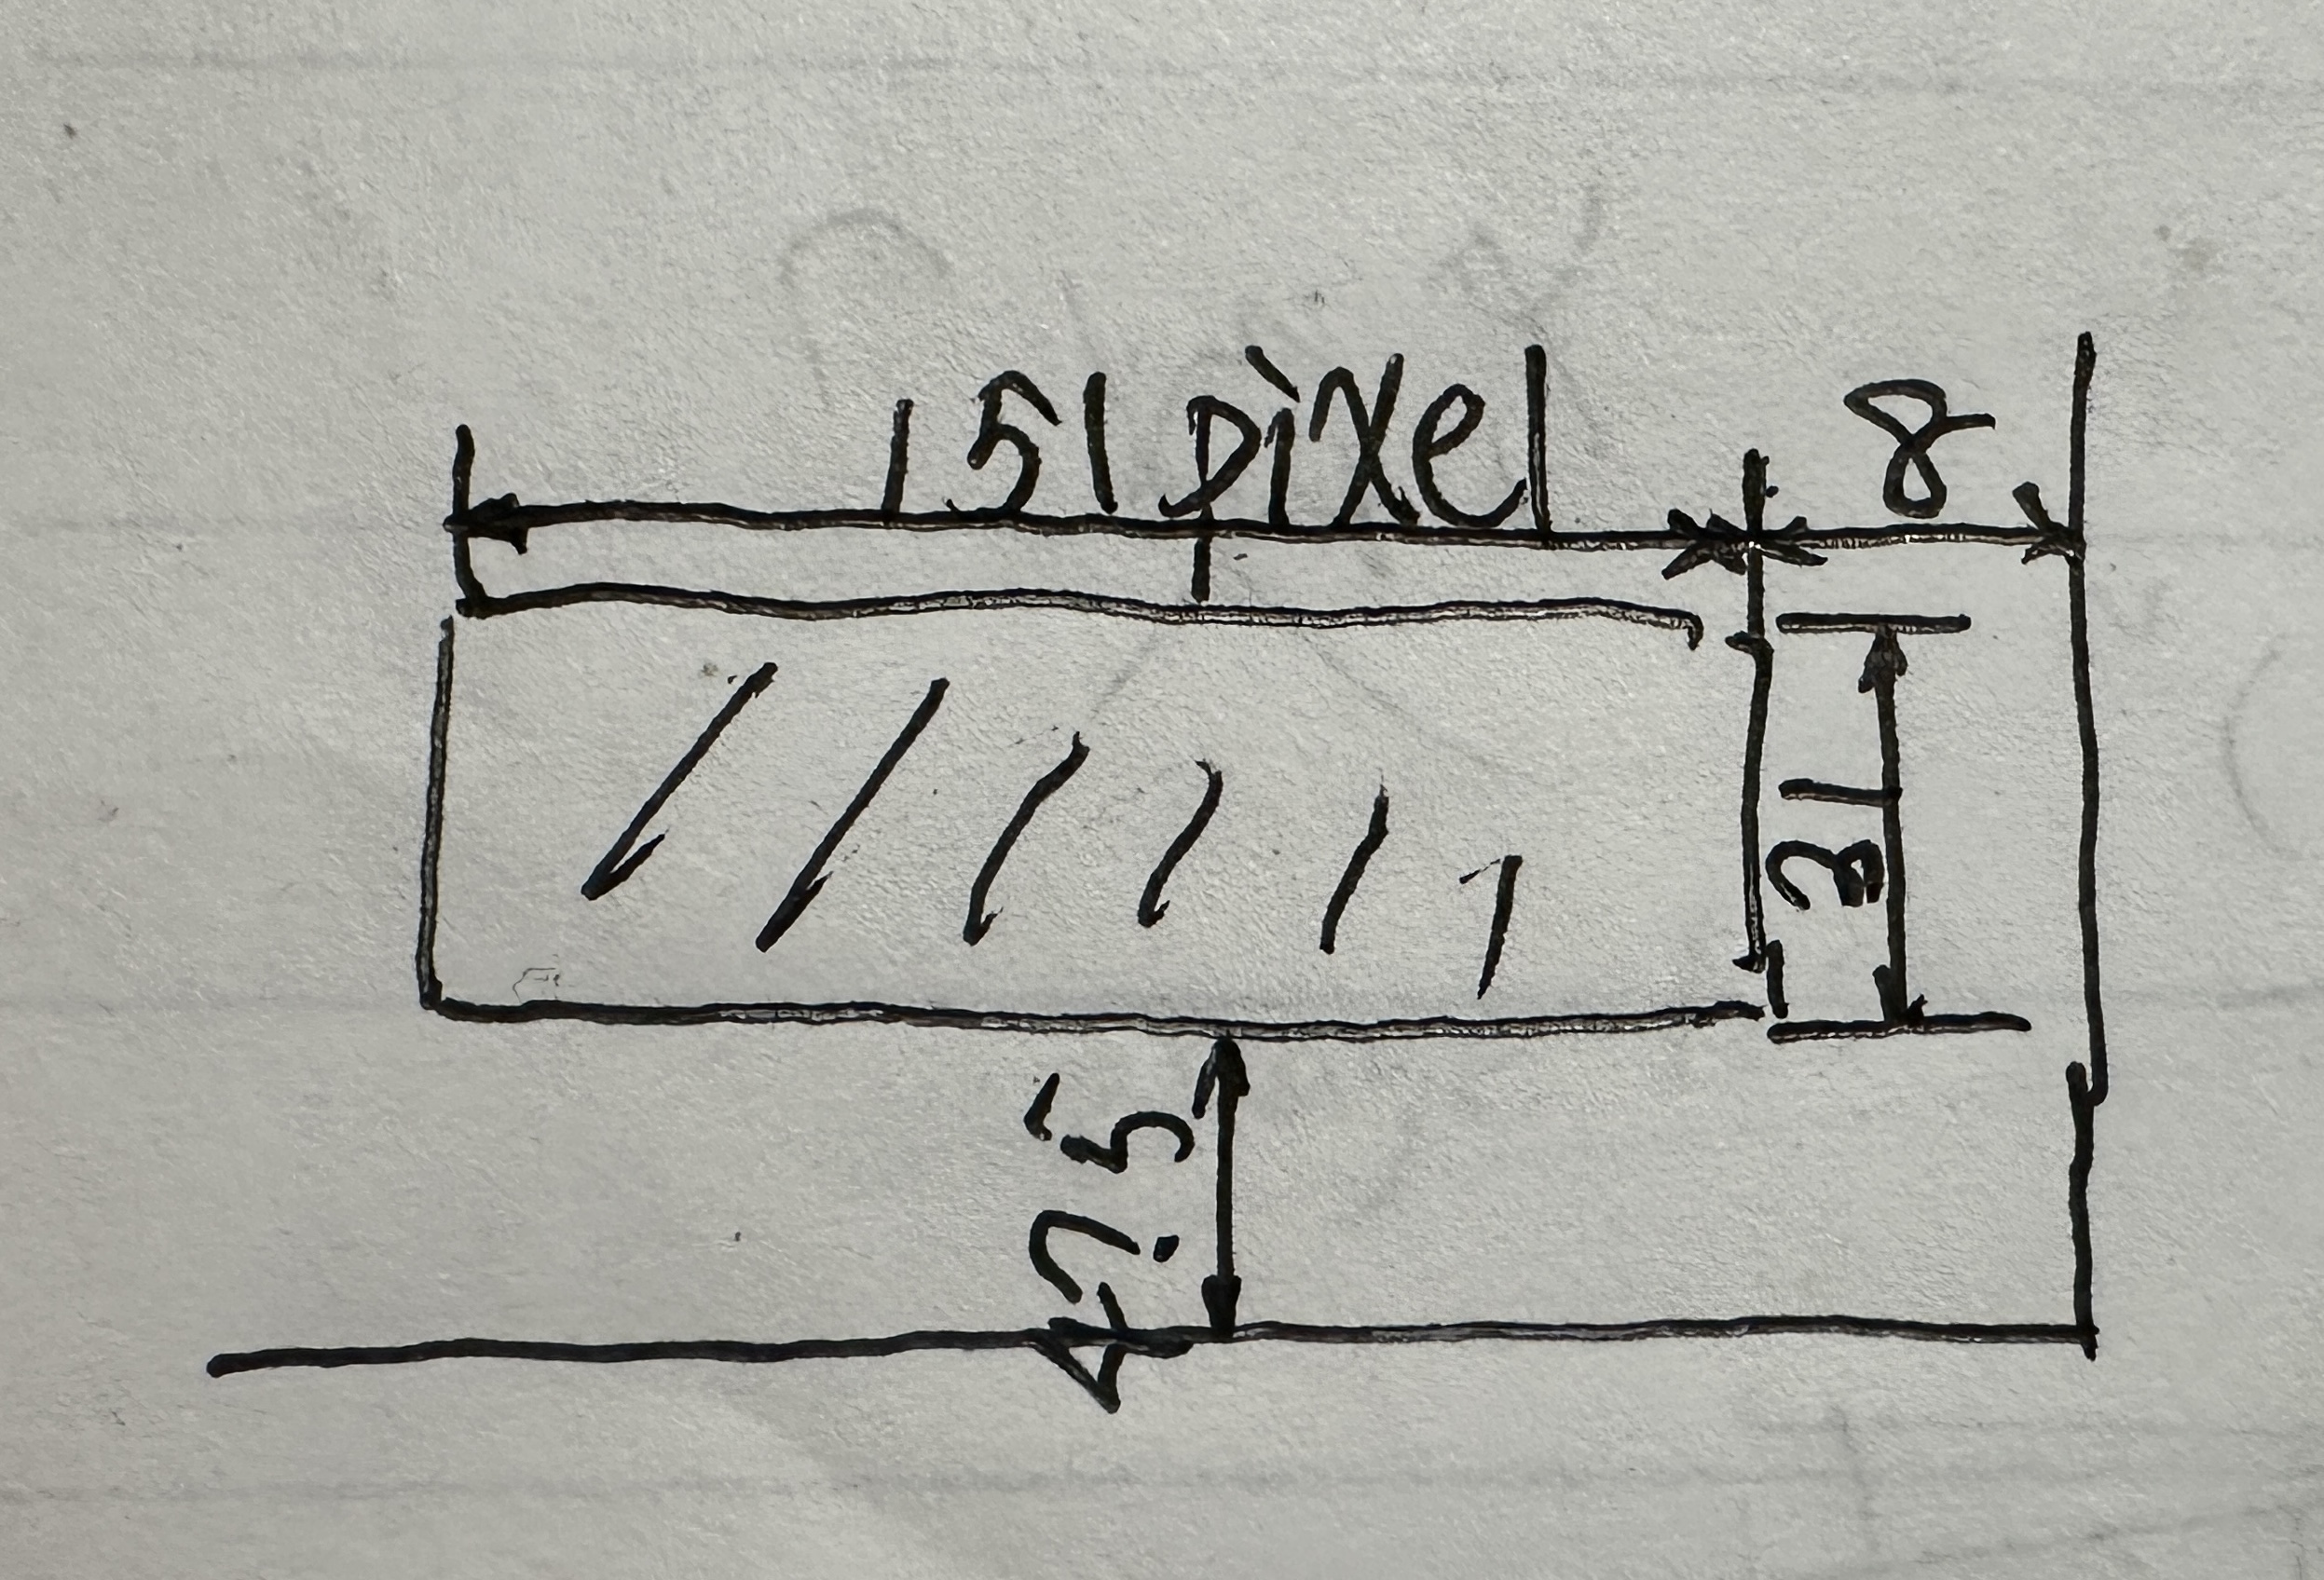 151 pixel
8
31
47.5